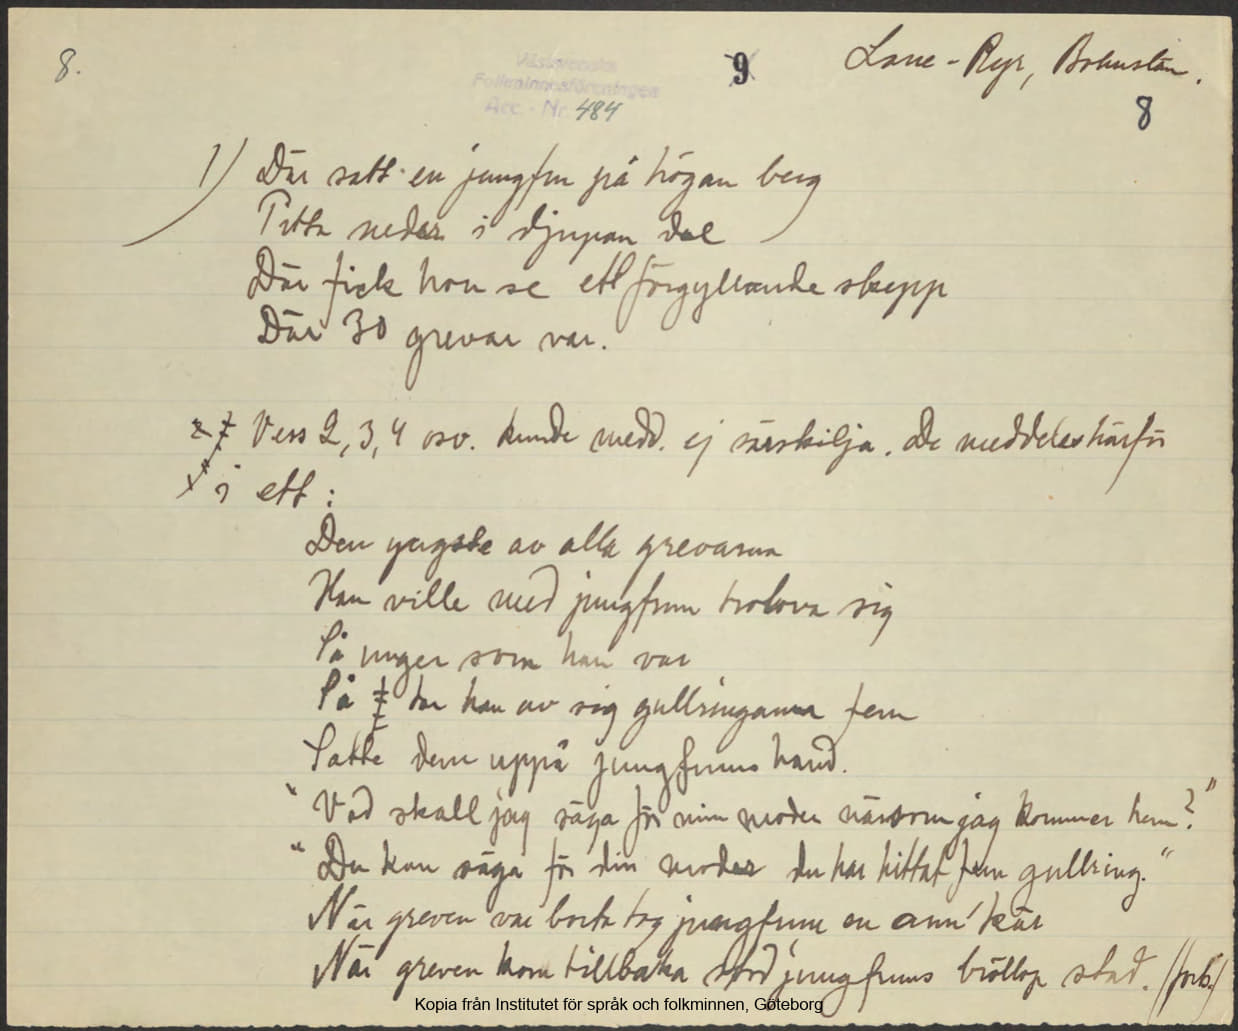 8.
Västsvenska
Folkminnesföreningen
Acc. - Nr. 484
9
Lane-Ryr, Bohuslän.
8
1) Där satt en jungfru på högan berg
Titta neder i djupan dal
Där fick hon se ett förgyllande skepp
Där 30 grevar var.
Vers 2, 3, 4 osv. kunde medd. ej särskilja. De meddelas härför
i ett:
Den yngste av alla grevarna
Han ville med jungfrun trolova sig
Så unger som han var
Så tar han av sig gullringarna fem
Satte dem uppå jungfruns hand.
"Vad skall jag säga för min moder närsom jag kommer hem?"
"Du kan säga för din moder du har hittat fem gullring."
När greven var borta tog jungfrun en ann' kär
När greven kom tillbaka stod jungfruns bröllop stad. (forts.)
Kopia från Institutet för språk och folkminnen, Göteborg